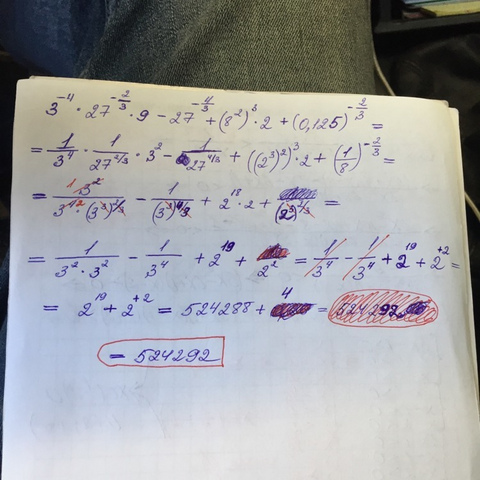 3^{-4} · 27^{-2/3} · 9 - 27^{-4/3} + (8^2)^3 · 2 + (0,125)^{-2/3} =
= 1/3^4 · 1/27^{2/3} · 3^2 - 1/27^{4/3} + ((2^3)^2)^3 · 2 + (1/8)^{-2/3} =
= 1 3^2/3^{4 2} · (3^3)^{2/3} - 1/(3^3)^{4/3} + 2^{18} · 2 + /(2^3)^{2/3} =
= 1/3^2 · 3^2 - 1/3^4 + 2^{19} + /2^2 = 1/3^4 - 1/3^4 + 2^{19} + 2^{+2} =
= 2^{19} + 2^{+2} = 524288 + 4 = 524292
= 524292